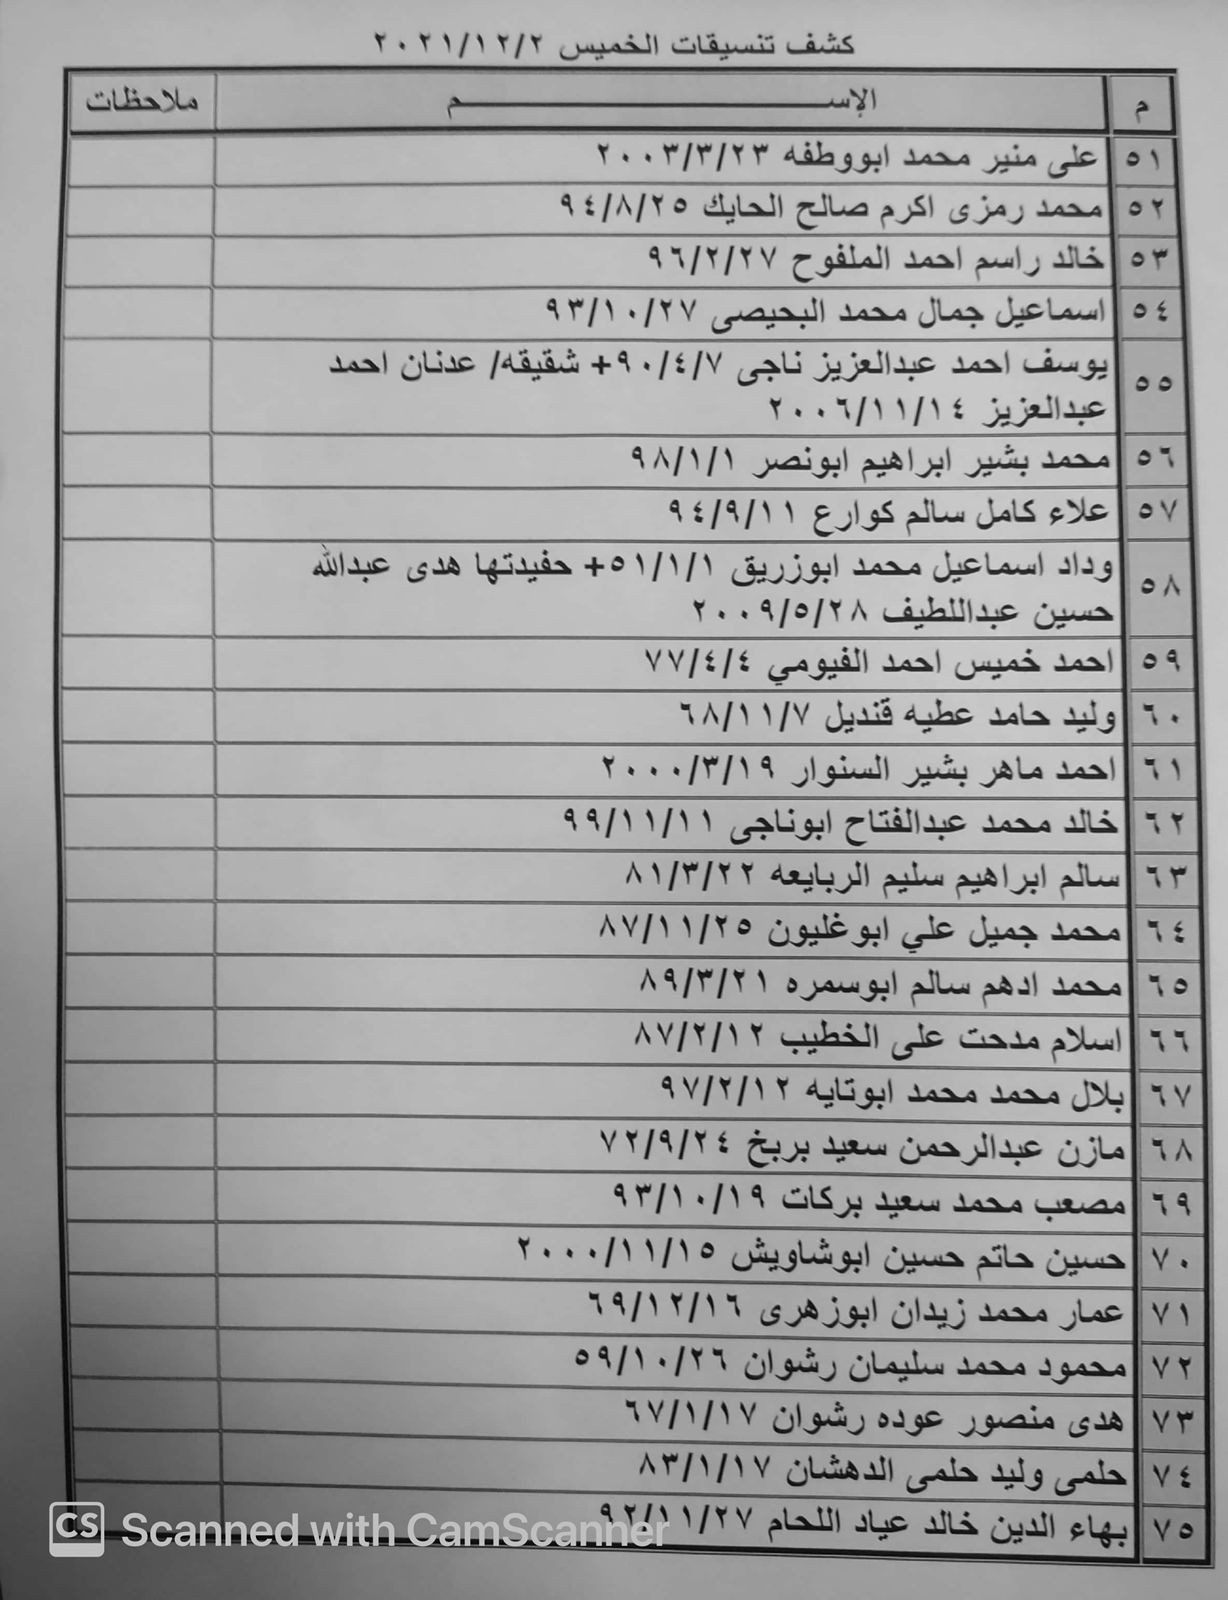 كشف تنسيقات الخميس ٢٠٢١/١٢/٢
م الإســـــــــــم ملاحظات
٥١ على منير محمد ابووطفه ٢٠٠٣/٣/٢٣
٥٢ محمد رمزى اكرم صالح الحايك ٩٤/٨/٢٥
٥٣ خالد راسم احمد الملفوح ٩٦/٢/٢٧
٥٤ اسماعيل جمال محمد البحيصى ٩٣/١٠/٢٧
٥٥ يوسف احمد عبدالعزيز ناجى ٩٠/٤/٧+ شقيقه/ عدنان احمد
عبدالعزيز ٢٠٠٦/١١/١٤
٥٦ محمد بشير ابراهيم ابونصر ٩٨/١/١
٥٧ علاء كامل سالم كوارع ٩٤/٩/١١
٥٨ وداد اسماعيل محمد ابوزريق ٥١/١/١+ حفيدتها هدى عبدالله
حسين عبداللطيف ٢٠٠٩/٥/٢٨
٥٩ احمد خميس احمد الفيومي ٧٧/٤/٤
٦٠ وليد حامد عطيه قنديل ٦٨/١١/٧
٦١ احمد ماهر بشير السنوار ٢٠٠٠/٣/١٩
٦٢ خالد محمد عبدالفتاح ابوناجى ٩٩/١١/١١
٦٣ سالم ابراهيم سليم الربايعه ٨١/٣/٢٢
٦٤ محمد جميل علي ابوغليون ٨٧/١١/٢٥
٦٥ محمد ادهم سالم ابوسمره ٨٩/٣/٢١
٦٦ اسلام مدحت على الخطيب ٨٧/٢/١٢
٦٧ بلال محمد محمد ابوتايه ٩٧/٢/١٢
٦٨ مازن عبدالرحمن سعيد بربخ ٧٢/٩/٢٤
٦٩ مصعب محمد سعيد بركات ٩٣/١٠/١٩
٧٠ حسين حاتم حسين ابوشاويش ٢٠٠٠/١١/١٥
٧١ عمار محمد زيدان ابوزهرى ٦٩/١٢/١٦
٧٢ محمود محمد سليمان رشوان ٥٩/١٠/٢٦
٧٣ هدى منصور عوده رشوان ٦٧/١/١٧
٧٤ حلمى وليد حلمى الدهشان ٨٣/١/١٧
٧٥ بهاء الدين خالد عياد اللحام ٩٢/١١/٢٧
CS Scanned with CamScanner